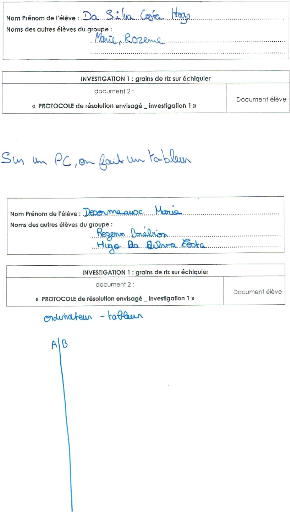 Nom Prénom de l'élève : Da Silva Costa Hugo
Noms des autres élèves du groupe :
Marie, Rozenn
INVESTIGATION 1 : grains de riz sur échiquier
document 2 :
« PROTOCOLE de résolution envisagé _ investigation 1 »
Document élève
Sur un PC, on fait un tableur
Nom Prénom de l'élève : Marie
Noms des autres élèves du groupe :
Rozenn
Hugo Da Silva Costa
INVESTIGATION 1 : grains de riz sur échiquier
document 2 :
« PROTOCOLE de résolution envisagé _ investigation 1 »
Document élève
ordinateur - tableur
A/B